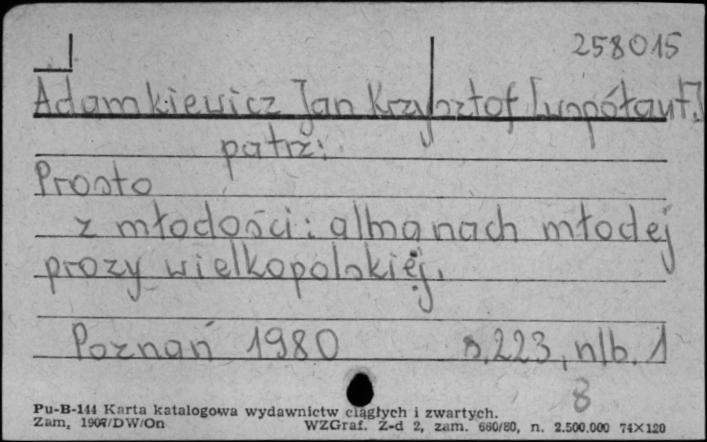 258015
Adamkiewicz Jan Krzysztof [współaut.]
patrz:
Prosto
z młodości: almanach młodej
prozy wielkopolskiej.
Poznań 1980 s. 223, nlb. 1
8
Pu-B-144 Karta katalogowa wydawnictw ciągłych i zwartych.
Zam. 1907/DW/On WZGraf. Z-d 2, zam. 660/80, n. 2.500.000 74×120